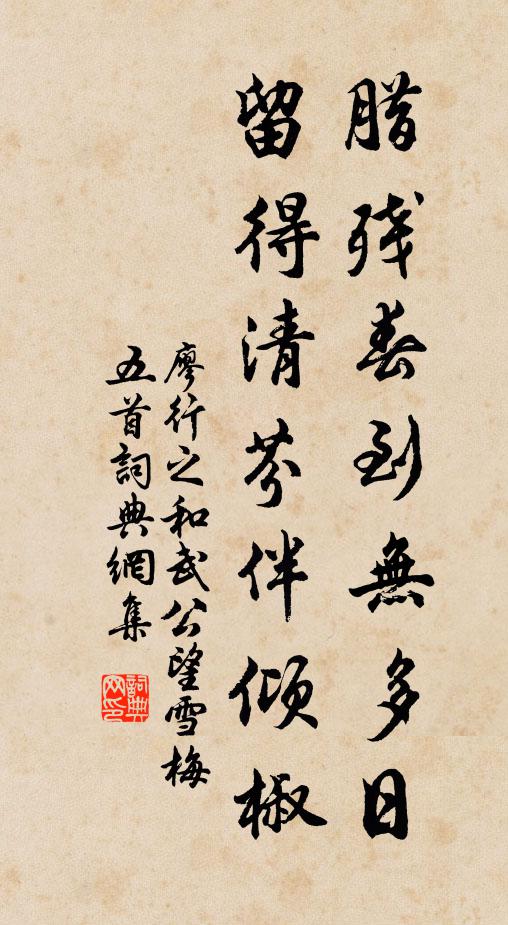 腊残春到無多日
留得清芬伴傾椒
廖行之和武公望雪梅
五首詞典網集
詞典
网印